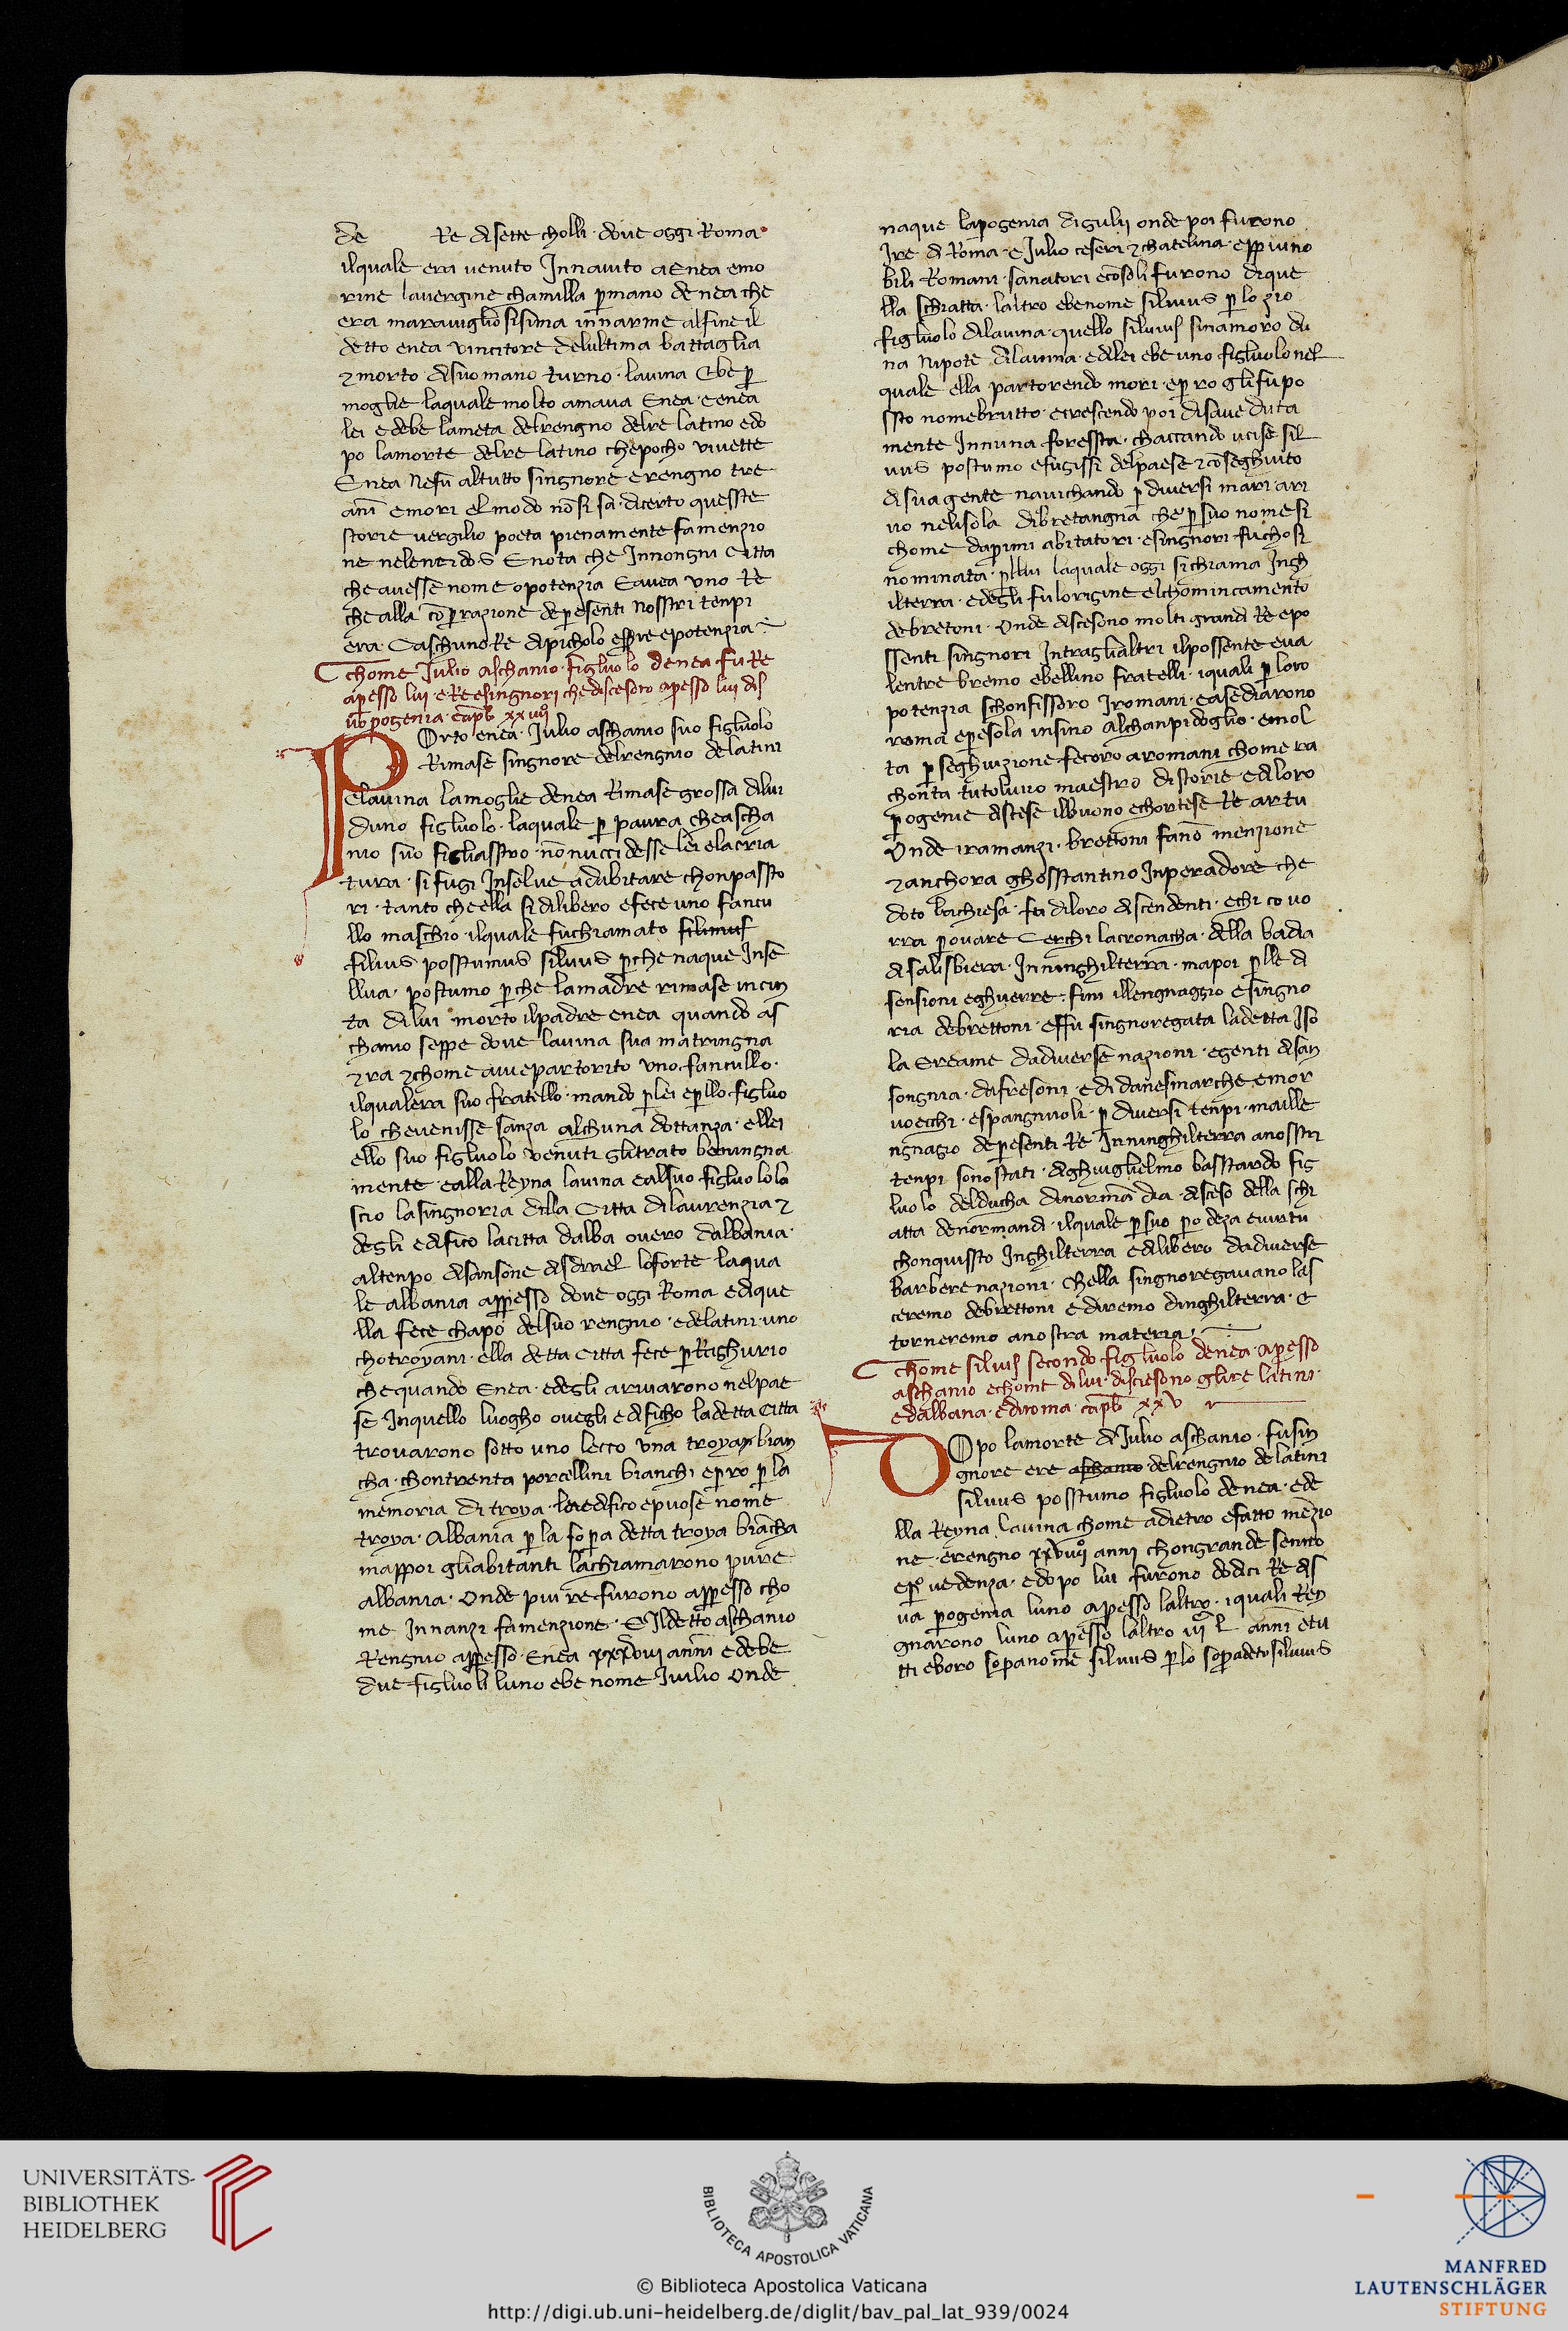 de Re di sette cholli · dove oggi Roma
ilquale era venuto Innaiuto aEnea emo
rine lavergine chamilla ꝑmano denea che
era maravigliosisima innarme alfine il
detto enea vincitore delultima battaglia
⁊ morto disuomano turno · lavina Ebe ꝑ
moglie laquale molto amava Enea · e enea
lei edebe lameta delrengno delre latino edo
po lamorte delre latino chepocho vivette
Enea Nefu altutto singnore erengno tre
anī emori elmodo nōsi sa · dicerto quesste
storie vergilio poeta pienamente famenzio
ne neleneidos Enota che Innongni citta
che avesse nome opotenzia Eavea uno Re
che alla cōꝑazione deꝑesenti nosstri tenpi
era · Caschuno Re dipicholo essere epotenzia
Chome Julio aschanio · figluolo denea fu Re
aꝑesso lui eReesingnori chedisceseno aꝑesso lui dis
uo ꝓgenia · capº xxiiiiº
Orto enea · Julio aschanio suo figluolo
Rimase singnore delrengnio delatini
elavina lamoglie denea Rimase grossa dilui
duno figluolo · laquale ꝑ paura cheascha
nio suo figliasstro · nō nuccidesse lei elacria
tura · si fugi Inselve adabitare chonpassto
ri · tanto cheella si diliberò efece uno fancu
llo maschio · ilquale fuchiamato silvius
filius posstumus silvius ꝑche naque Inse
llva · postumo ꝑche lamadre rimase incin
ta dilui morto ilpadre enea quando as
chanio seppe dove lavina sua matringna
⁊ra ⁊chome avepartorito uno fancullo ·
ilqualera suo fratello · mando ꝑlei eꝑllo figluo
lo chevenisse sanza alchuna dottanza · ellei
ello suo figluolo venuti glitrato beningna
mente · ealla Reyna lavina ealsuo figluolola
scio lasingnoria della Citta dilaurenzia ⁊
degli edifico lacitta dalba overo dalbania ·
altenpo disansone disdrael loforte · laqua
le albania apꝑesso dove oggi Roma edique
lla fece chapo delsuo rengnio · edelatini · uno
chotroyani · ella detta citta fece ꝑRaghurio
chequando Enea · edegli arivarono nelpae
se Inquello luogho ovegli edificho ladetta citta
trovarono sotto uno lecco una troya bian
cha · chontrenta porcellini bianchi eꝑo ꝑ la
memoria di troya · laedifico epuose nome
troya · Albania ꝑ la soꝑa detta troya biācha
mappoi gliabitanti lachiamarono pure
albania · Onde piu re furono apꝑesso cho
me Innanzi famenzione · E Ildetto aschanio
Rengnio apꝑesso Enea xxxviii anni edebe
due figluoli luno ebe nome Iulio Onde
naque laꝓgenia digulii onde poi furono
Ire di Roma · e Julio ceseri ⁊chatelina · epiuno
bili Romani · sanatori ecōsoli furono dique
lla schiatta · laltro ebenome silvius ꝑ lo zio
figluolo dilavina · quello silvius sinamoro du
na nipote dilavina · edilei ebe uno figluolo nel
quale ella partorendo mori · eꝑ ro glifupo
ssto nomebrutto · ecrescendo poi disave duta
mente Innuna foressta · chacciando ucise sil
vius postumo efugissi delpaese ⁊cōseghuito
disuagente navichando ꝑ diversi mari · ari
vo nelisola dibretangnia che ꝑ suo nome si
chome daprimi abitatori · esingnori · fuchosi
nominata · ꝑllui laquale oggi sichiama Ingh
ilterra · edegli fulorigine elchomincamento
debretoni · Onde disceseno molti grandi Re epo
ssenti singnori Intraglialtri ilpossente eva
lentre bremo ebellino fratelli · iquali ꝑ loro
potenzia schonfissoro Iromani · easediarono
roma eꝑesola insino alchanpidoglio · emol
ta ꝑseghuizione fecoro aromani chome ra
chonta tutolivio maestro di storie edi loro
ꝓgenie discese ilbuono echortese Re artu
Onde iramanzi · brettoni fanō menzione
⁊anchora ghosstantino Inperadore che
doto lachiesa · fu diloro discendenti · echi co vo
rra ꝓvare Cerchi lacronacha · della badia
disalisbiera · Inninghilterra · mapoi ꝑlle di
sensioni eghuerre · fini illengnaggio esingno
ria debrettoni · effu singnoregata ladetta Iso
la Ereame dadiverse nazioni · egenti disan
songnia · difresoni · edi danesmarche emor
voecchi · espangnuoli · ꝑ diversi tenpi · maille
ngnagio deꝑesenti Re Inninghilterra anosstri
tenpi sono stati · dighuiglielmo basstardo fig
luolo delducha dinormādia · disceso della schi
atta denormandi · ilquale ꝑ suo ꝓdeza evirtu
chonquissto Inghilterra edilibero dadiverse
barbere nazioni · Chella singnoregiavano las
ceremo debrettoni ediremo dinghilterra · E
torneremo anostra materia
Chome silvius secondo figluolo denea · aꝑesso
aschanio echome dilui · disciesono glire latini ·
edalbana · ediroma · capº xxv
Opo lamorte di Julio aschanio · fusin
gnore ere aschanio delrengnio delatini
silvius posstumo figluolo denea · ede
lla Reyna lavina chome adietro efatto mēzio
ne · erengno xxviiiiº anni chongrande senno
eꝓvedenza · edopo lui furono dodici Re dis
ua ꝓgenia luno aꝑesso laltro · iquali Ren
gnarono luno aꝑesso laltro iiiᶜ l anni etu
tti eboro soꝑanome silvius ꝑ lo soꝑadeto silvius
UNIVERSITÄTS-
BIBLIOTHEK
HEIDELBERG
BIBLIOTECA APOSTOLICA VATICANA
© Biblioteca Apostolica Vaticana
http://digi.ub.uni-heidelberg.de/diglit/bav_pal_lat_939/0024
MANFRED
LAUTENSCHLÄGER
STIFTUNG